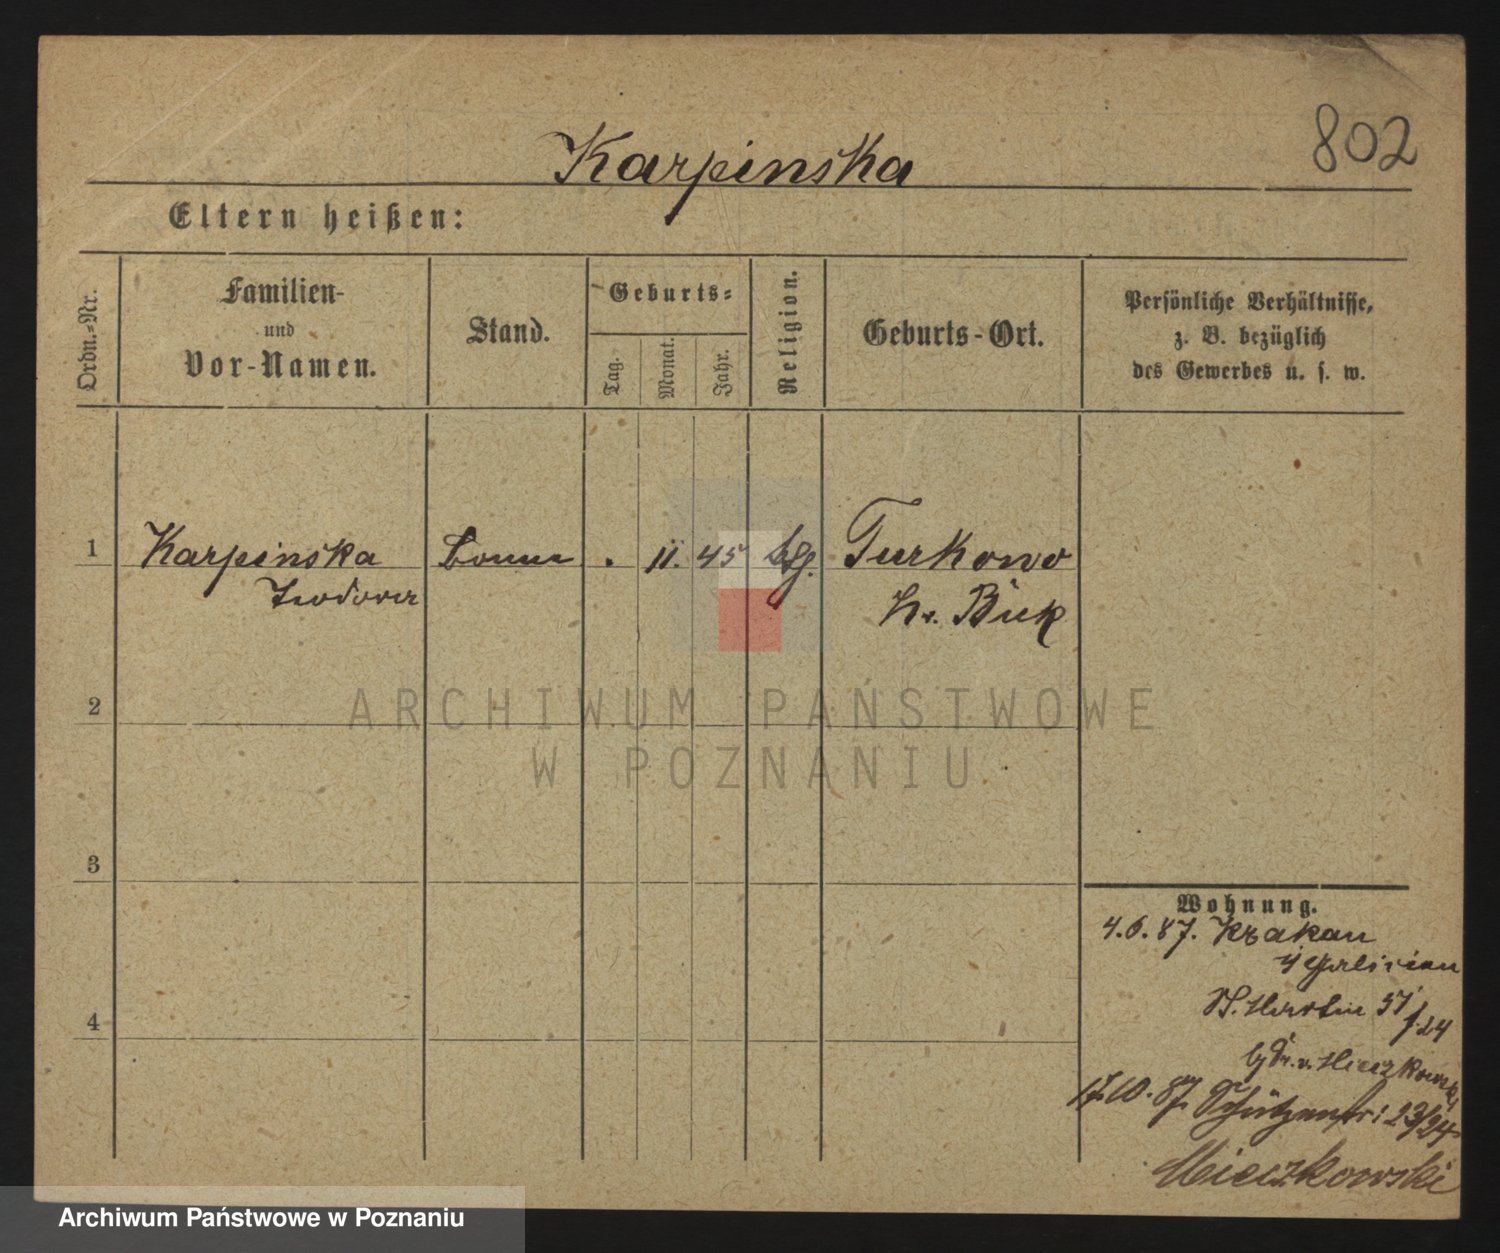 802
Karpinska
Eltern heißen:
Ordn.-Nr.
Familien-
und
Vor-Namen.
Stand.
Geburts-
Tag.
Monat.
Jahr.
Religion.
Geburts-Ort.
Persönliche Verhältnisse,
z. B. bezüglich
des Gewerbes u. s. w.
1
Karpinska
Teodora
Bonne
. 11. 45
Turkowo
Kr. Buk
2
ARCHIWUM PAŃSTWOWE
W POZNANIU
3
Wohnung.
4.6.87. Krakau
i Galizien
St. Martin 57
f. 24
b/ Fr. v. Mieczkowski
4
17.10.87. Schützenstr: 23/24
Mieczkowski
Archiwum Państwowe w Poznaniu